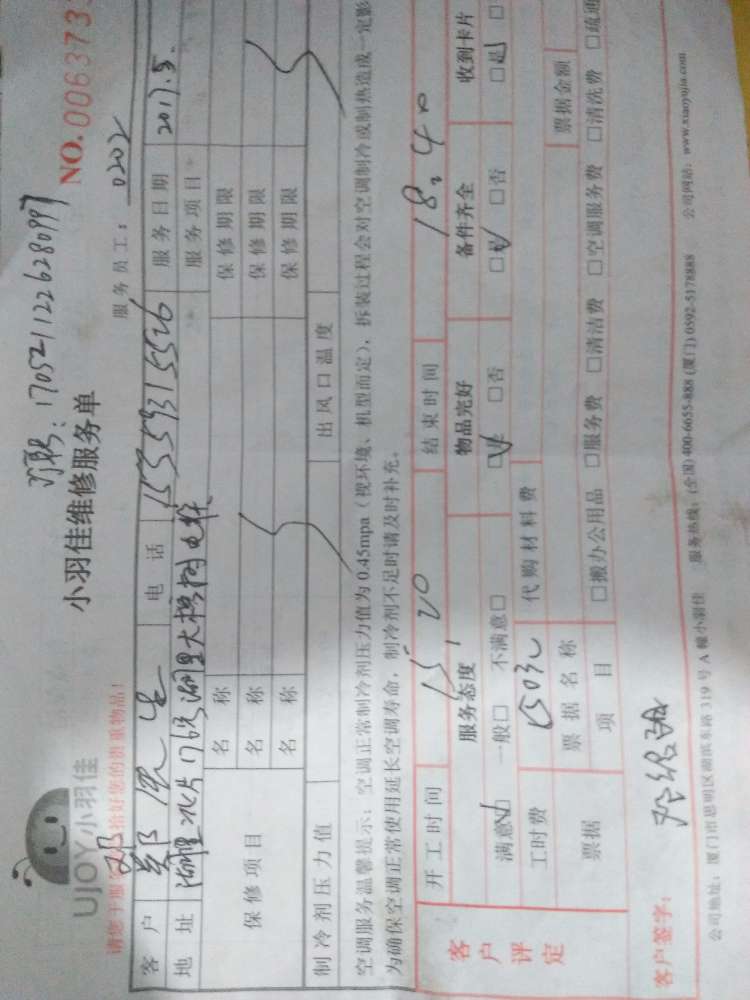 UJOY小羽佳
订单: 170521122628099
小羽佳维修服务单
NO.0063733
服务员工: 0202
客户 电话 15559315526 服务日期 2017.5.
地址 服务项目
保修项目 名称 保修期限
名称 保修期限
名称 保修期限
制冷剂压力值 出风口温度
空调服务温馨提示:空调正常制冷剂压力值为0.45mpa(视环境、机型而定),拆装过程会对空调制冷或制热造成一定影
为确保空调正常使用延长空调寿命,制冷剂不足时请及时补充。
客户评定 开工时间 15:20 结束时间 18:40
服务态度 物品完好 备件齐全 收到卡片
满意□ 一般□ 不满意□ □是 □否 □是 □否 □是
工时费 150元 代购材料费
票据 票据名称 票据金额
项目 □搬办公用品 □服务费 □清洁费 □空调服务费 □清洗费 □疏通
客户签字:
公司地址:厦门市思明区湖滨东路319号A幢小羽佳 服务热线:(全国)400-6655-888 (厦门) 0592-5178888 公司网站:www.xiaoyujia.com